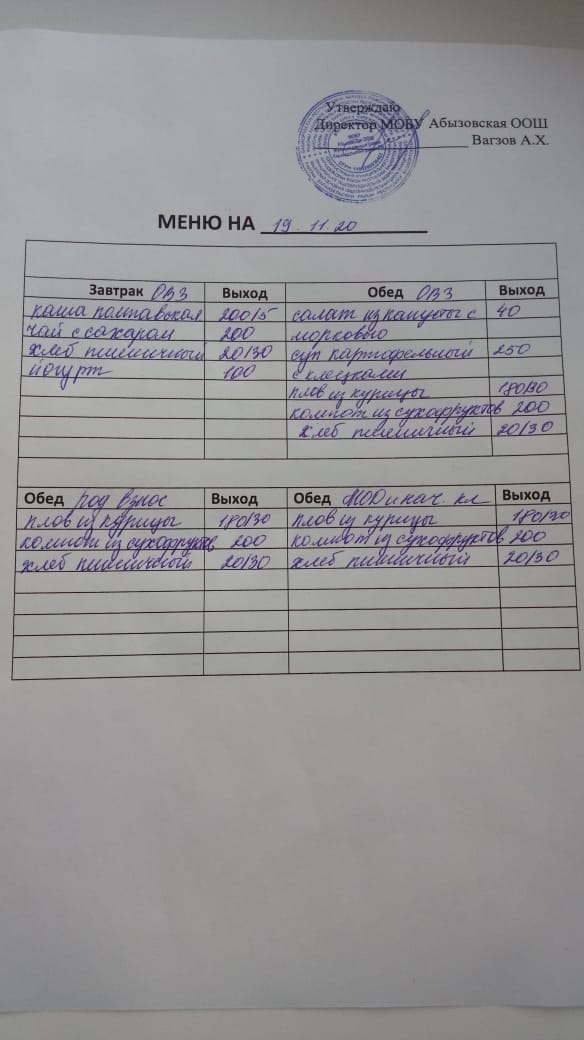 Утверждаю
Директор МОБУ Абызовская ООШ
Вагзов А.Х.
МЕНЮ НА 19.11.20
Завтрак ОВЗ Выход Обед ОВЗ Выход
каша полтавская 200/5 салат из капусты с 40
чай с сахаром 200 морковью
хлеб пшеничный 20/30 суп картофельный 250
йогурт 100 с клецками
плов из курицы 180/30
компот из сухофруктов 200
хлеб пшеничный 20/30
Обед род взнос Выход Обед МОД и нач. кл Выход
плов из курицы 180/30 плов из курицы 180/30
компот из сухофруктов 200 компот из сухофруктов 200
хлеб пшеничный 20/30 хлеб пшеничный 20/30